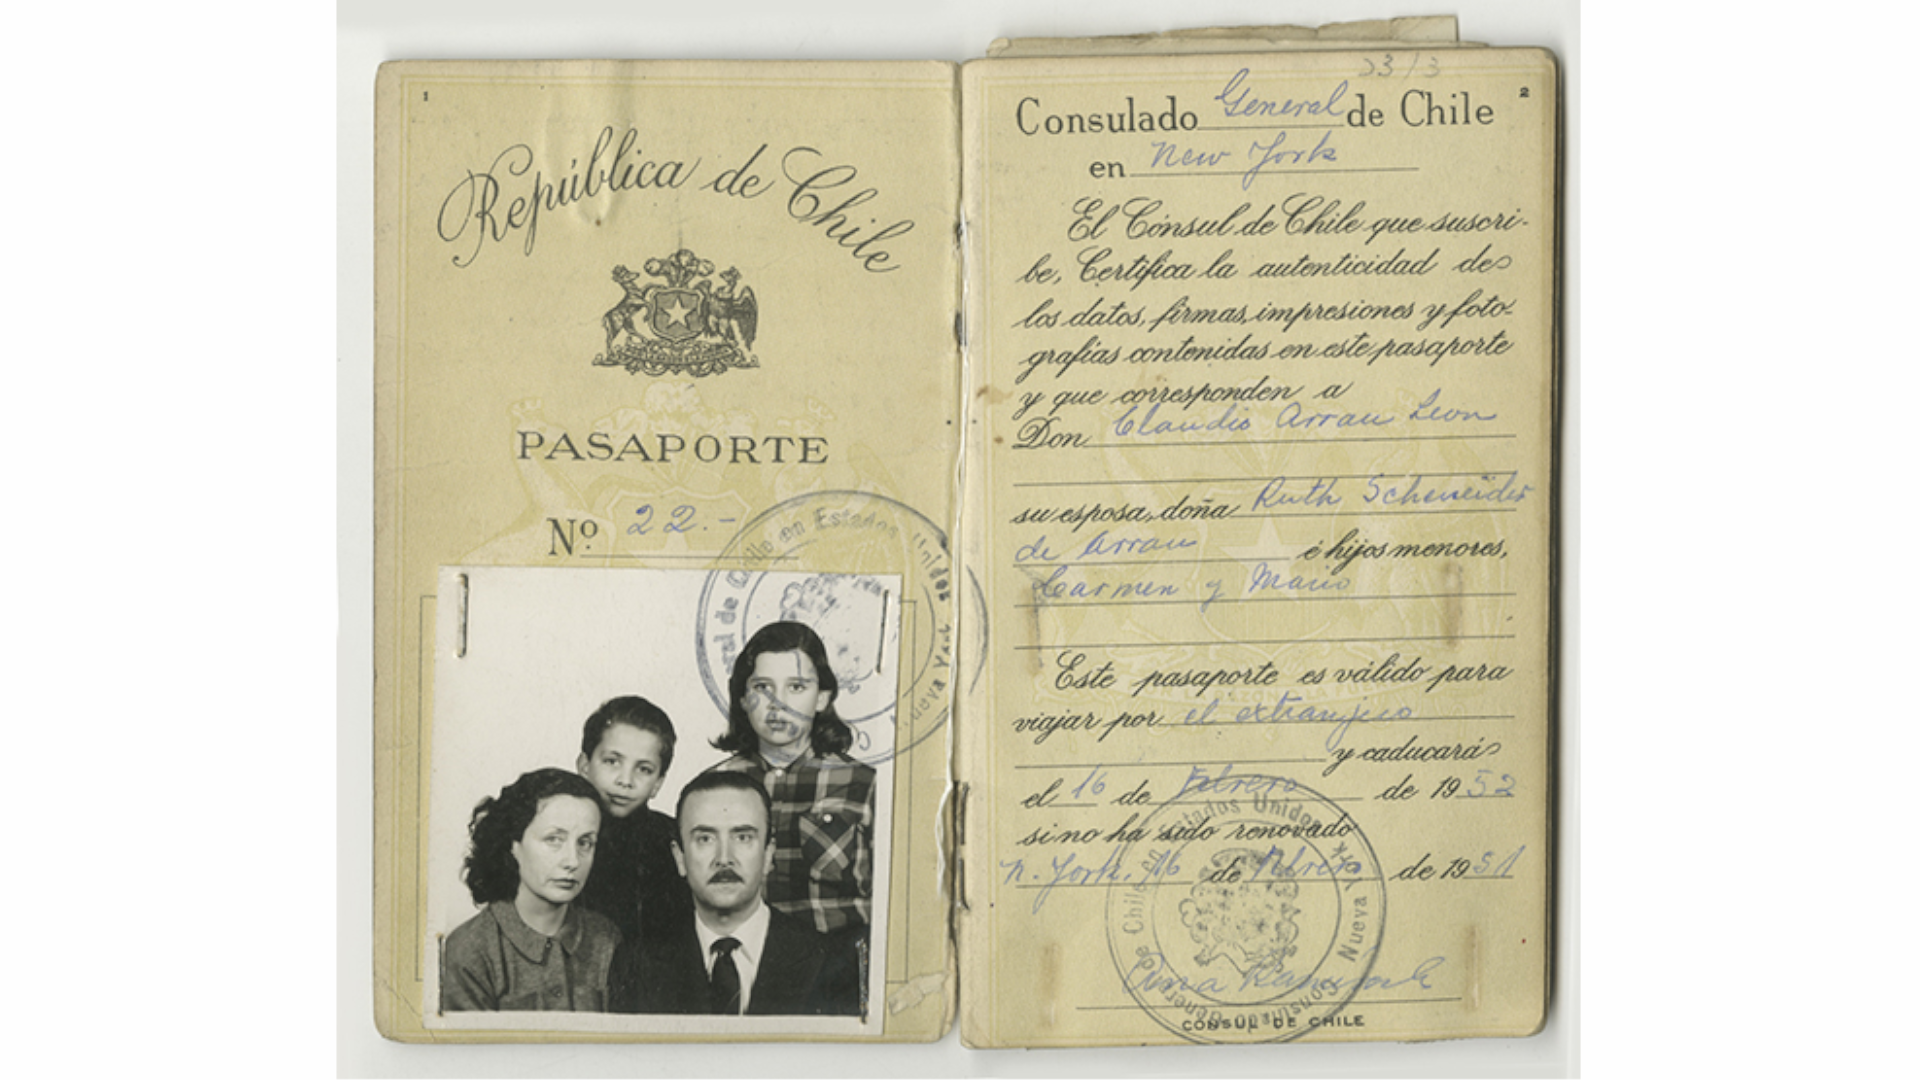 1
República de Chile
PASAPORTE
Nº 22.-
2
Consulado General de Chile
en New York
El Cónsul de Chile que suscri-
be, Certifica la autenticidad de
los datos, firmas, impresiones y foto-
grafías contenidas en este pasaporte
y que corresponden a
Don Claudio Arrau Leon
su esposa, doña Ruth Scheneider
de Arrau é hijos menores,
Carmen y Mario
Este pasaporte es válido para
viajar por el extranjero
y caducará
el 16 de Febrero de 1952
si no ha sido renovado
N. York, 16 de Febrero de 1951
CONSUL DE CHILE
Consulado General de Chile en Estados Unidos
Nueva York